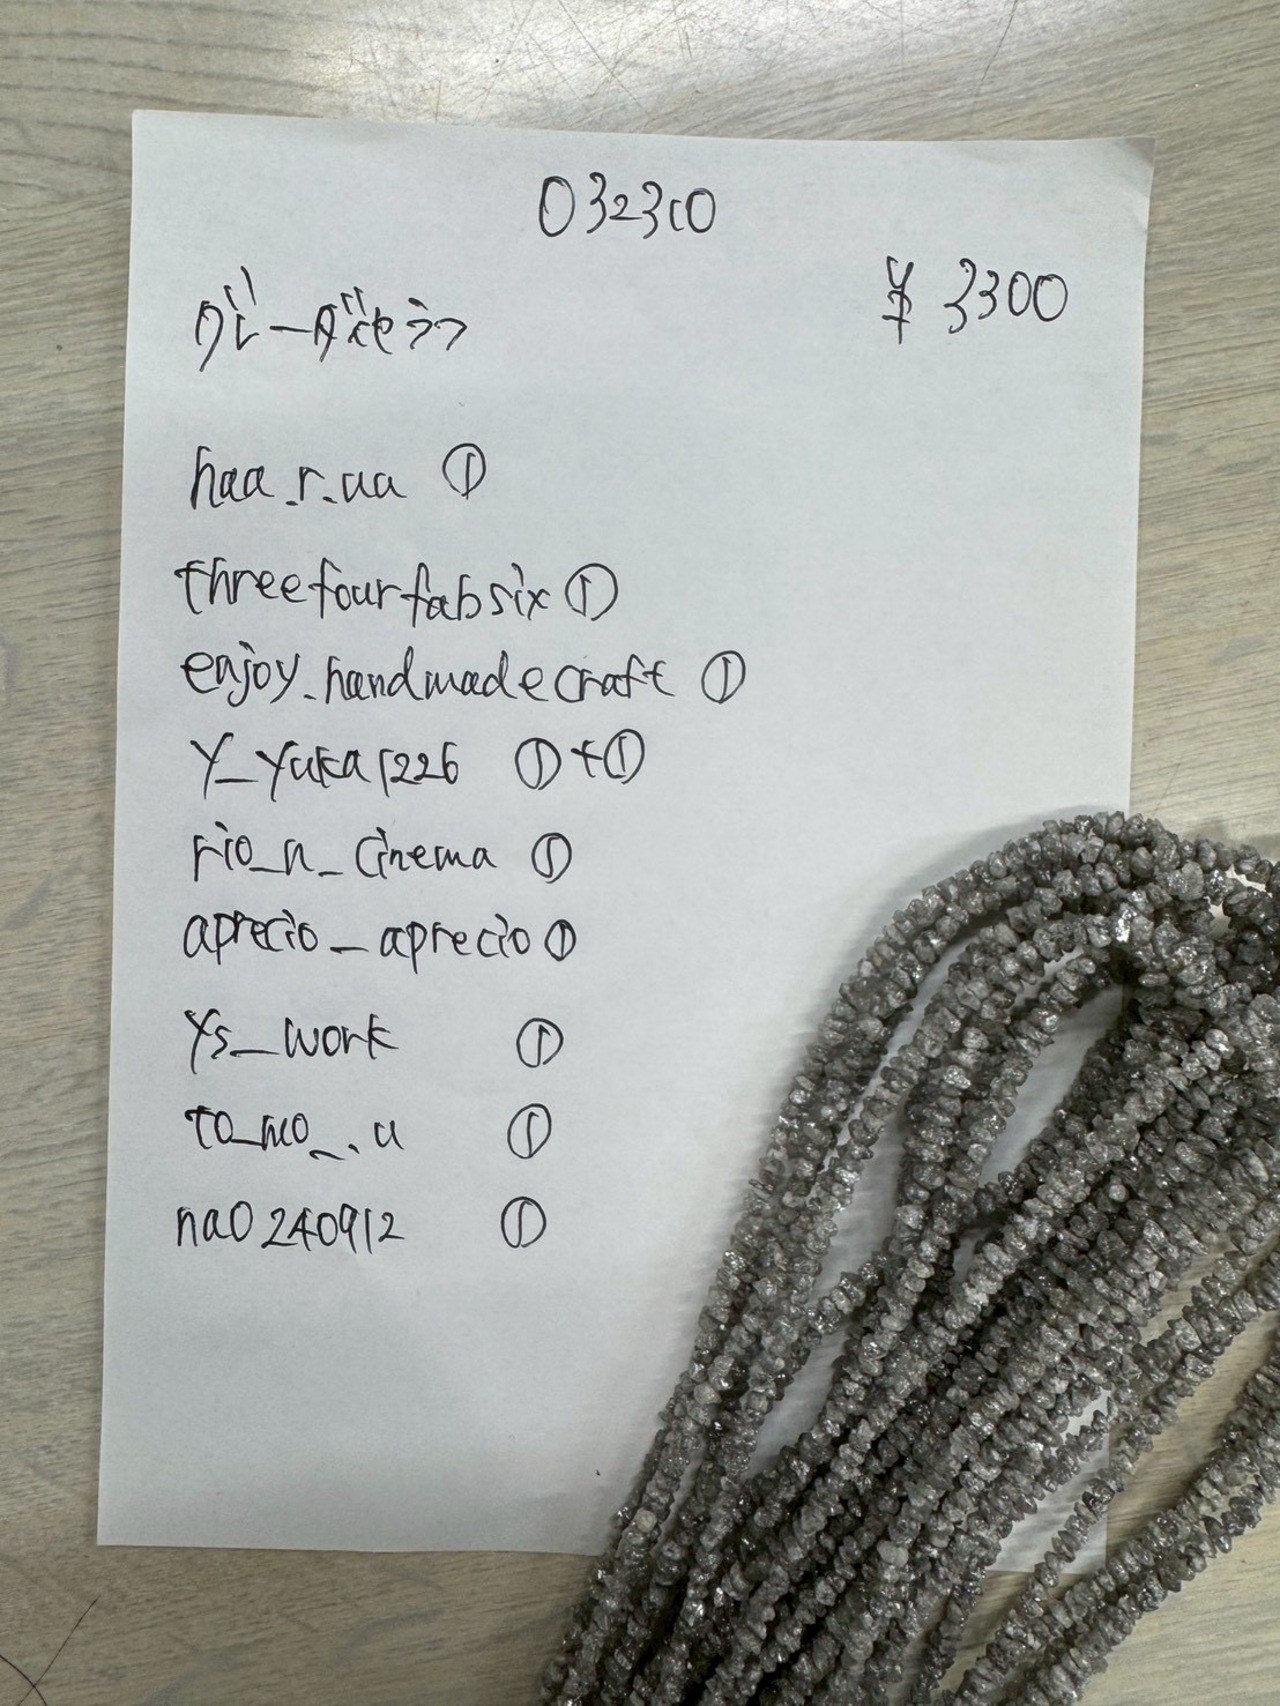 032310
¥ 3300
グレーダイヤ
haa_r_aa ①
threefourfabsix ①
enjoy_handmadecraft ①
y_yuka1226 ①+①
rio_n_cinema ①
aprecio_aprecio ①
ys_work ①
to_mo_.u ①
na0240912 ①